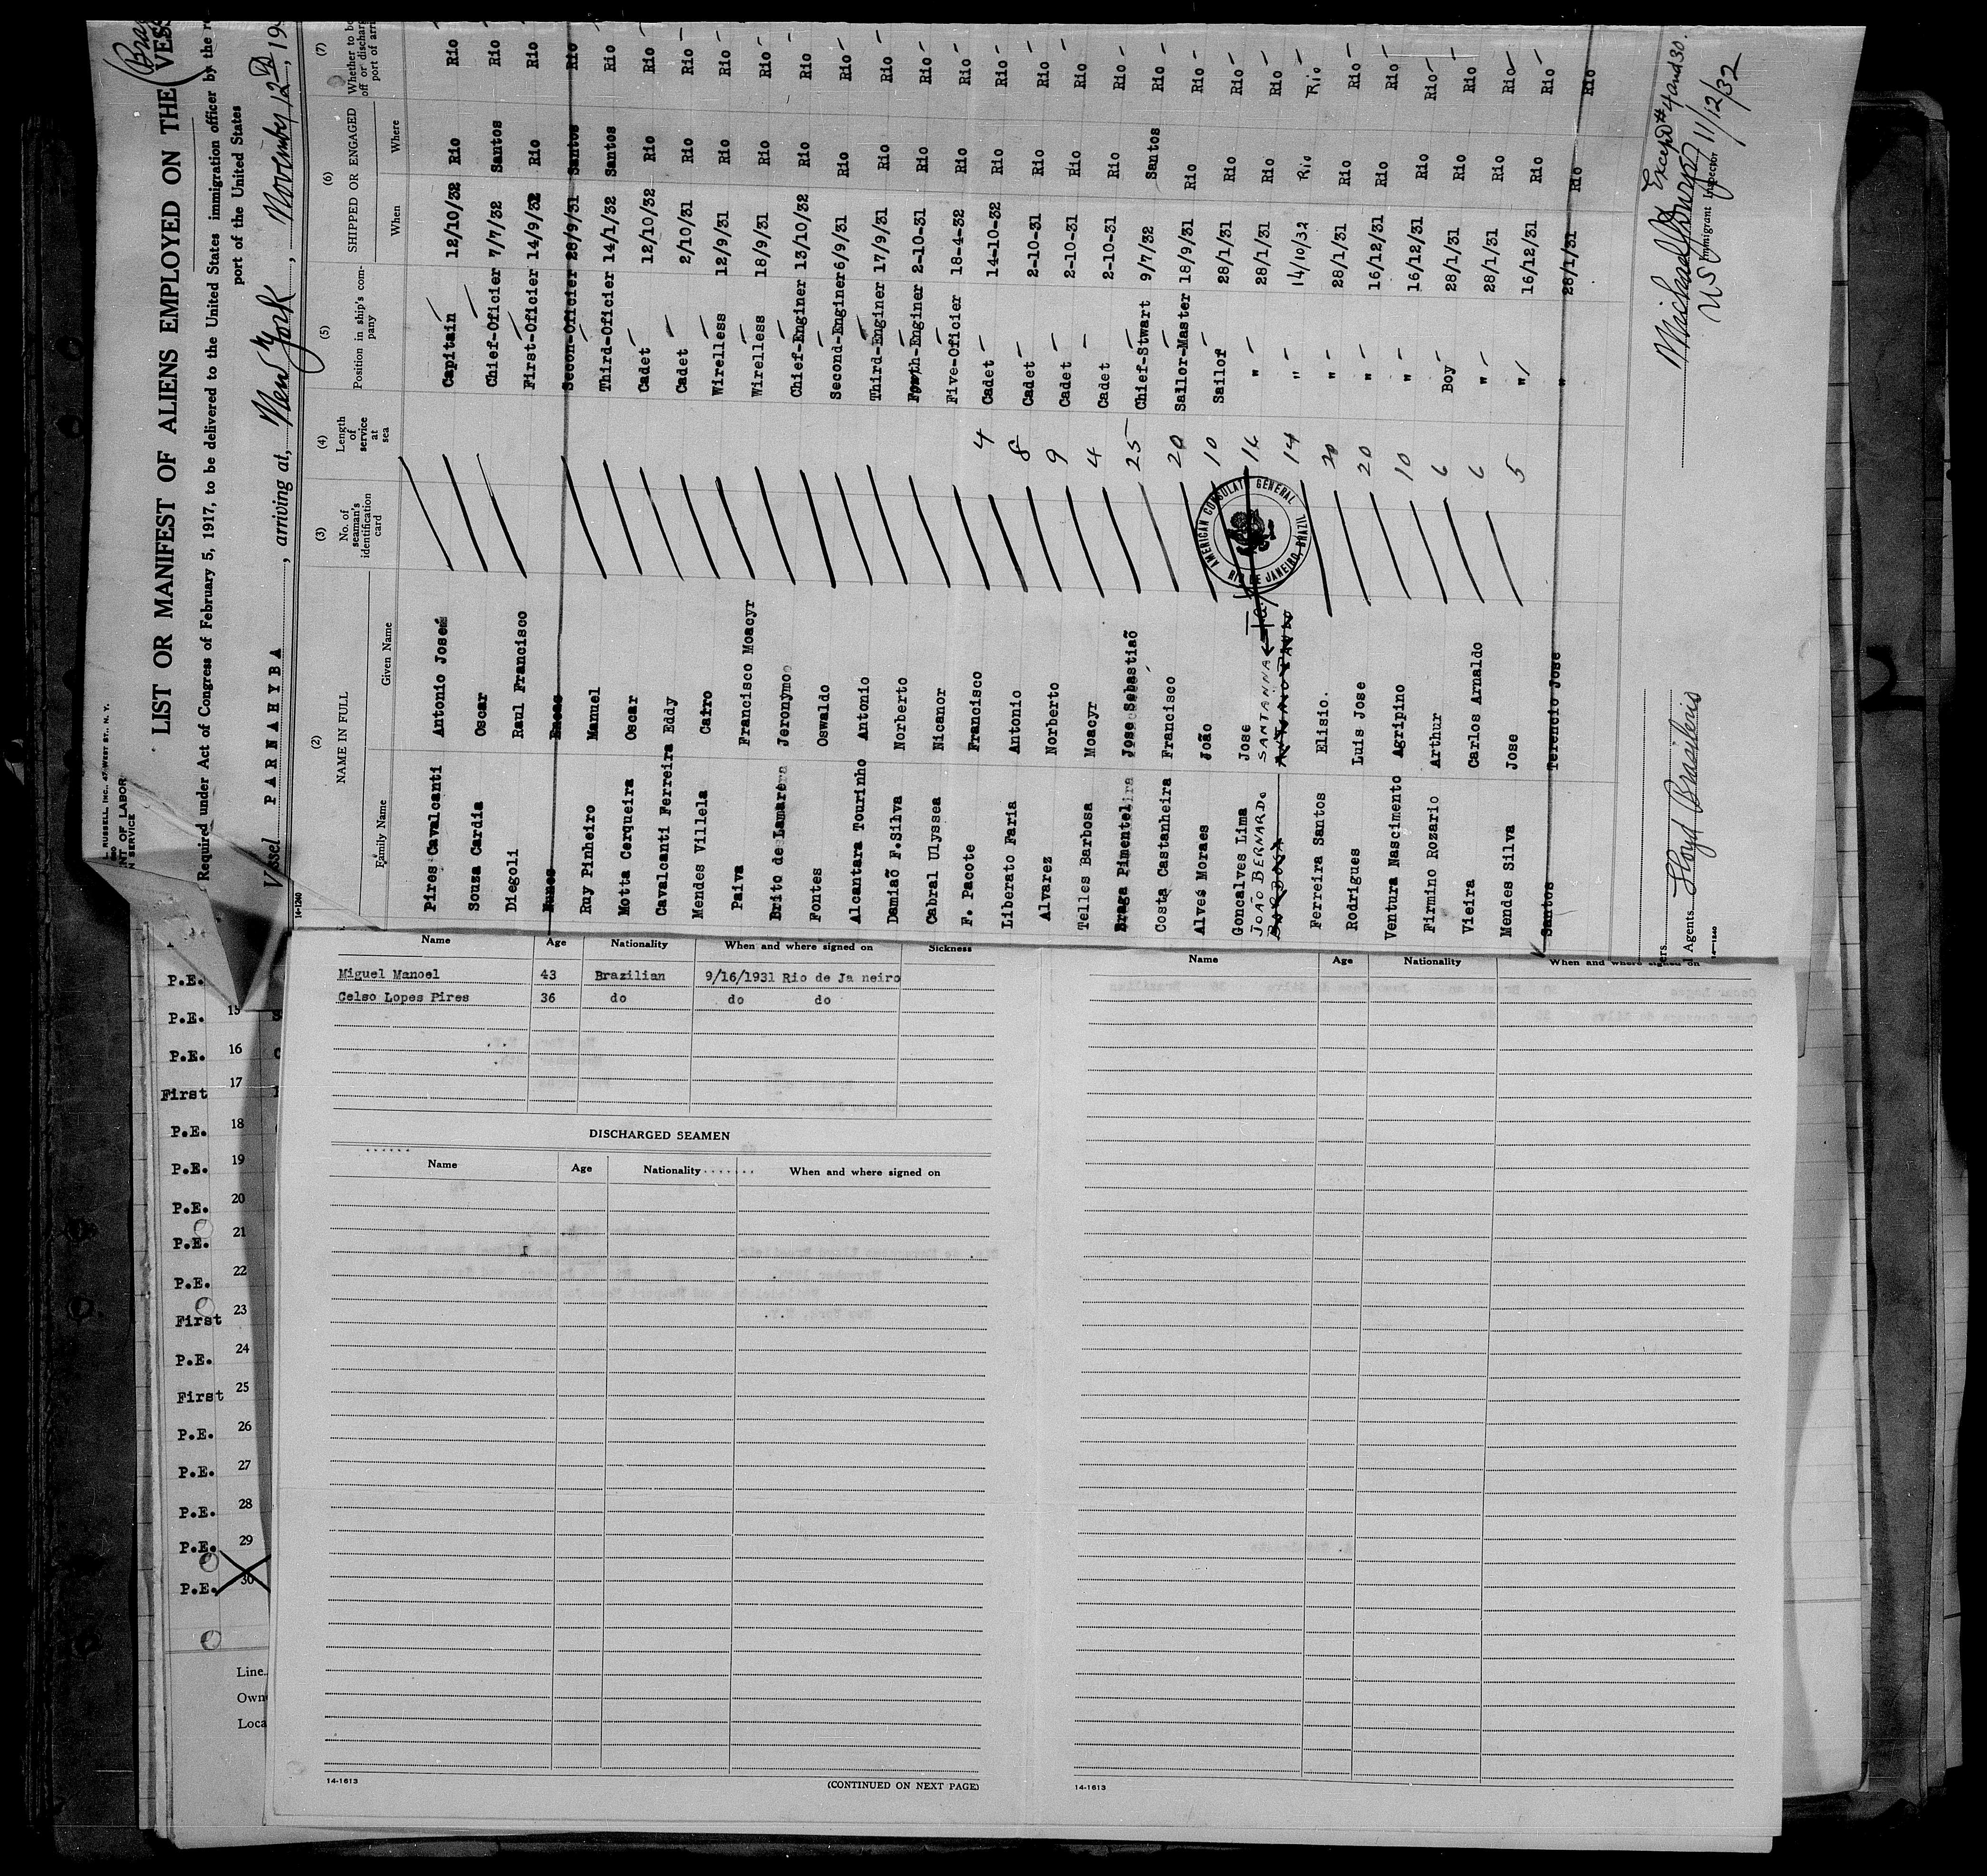 L. RUSSELL, INC., 47 WEST ST., N. Y.
NT OF LABOR
N SERVICE
(Bra
LIST OR MANIFEST OF ALIENS EMPLOYED ON THE VES
Required under Act of Congress of February 5, 1917, to be delivered to the United States immigration officer by the r
port of the United States
Vessel PARNAHYBA, arriving at, New York, November 12th, 19
14-1240
(2) (3) (4) (5) (6) (7)
NAME IN FULL
Family Name Given Name
No. of seaman's identification card
Length of service at sea
Position in ship's company
SHIPPED OR ENGAGED
When Where
Whether to be
off or discharg
port of arri
Pires Cavalcanti Antonio José Capitain 12/10/32 Rio Rio
Souza Cardia Oscar Chief-Oficier 7/7/32 Santos Rio
Diegoli Raul Francisco First-Oficier 14/9/32 Rio Rio
Nunes Eneas Secon-Oficier 28/9/31 Santos Rio
Ruy Pinheiro Manuel Third-Oficier 14/1/32 Santos Rio
Motta Cerqueira Oscar Cadet 12/10/32 Rio Rio
Cavalcanti Ferreira Eddy Cadet 2/10/31 Rio Rio
Mendes Villela Cairo Wirelless 12/9/31 Rio Rio
Paiva Francisco Moacyr Wirelless 18/9/31 Rio Rio
Brito de Lamare Jeronymo Chief-Enginer 13/10/32 Rio Rio
Fontes Oswaldo Second-Enginer 6/9/31 Rio Rio
Alcantara Tourinho Antonio Third-Enginer 17/9/31 Rio Rio
Damiaõ F.Silva Norberto Fourth-Enginer 2-10-31 Rio Rio
Cabral Ulyssea Nicanor Five-Oficier 18-4-32 Rio Rio
F. Pacote Francisco 4 Cadet 14-10-32 Rio Rio
Liberato Faria Antonio 8 Cadet 2-10-31 Rio Rio
Alvarez Norberto 9 Cadet 2-10-31 Rio Rio
Telles Barbosa Moacyr 4 Cadet 2-10-31 Rio Rio
Braga Pimentel Jose Sebastiaõ 25 Chief-Stwart 9/7/32 Santos Rio
Costa Castanheira Francisco 20 Sailor-Master 18/9/31 Rio Rio
Alves Moraes João 10 Sailor 28/1/31 Rio Rio
Goncalves Lima Jose 16 " 28/1/31 Rio Rio
JOÃO BERNARDO SANTANNA 14 " 14/10/32 Rio Rio
BARBOSA
Ferreira Santos Elisio. 20 " 28/1/31 Rio Rio
Rodrigues Luis Jose 20 " 16/12/31 Rio Rio
Ventura Nascimento Agripino 10 " 16/12/31 Rio Rio
Firmino Rozario Arthur 6 Boy 28/1/31 Rio Rio
Vieira Carlos Arnaldo 6 " 28/1/31 Rio Rio
Mendes Silva Jose 5 " 16/12/31 Rio Rio
Santos Terencio Jose " 28/1/31 Rio Rio
AMERICAN CONSULATE GENERAL
RIO DE JANEIRO, BRAZIL
Except # 4 and 30.
11/12/32
US Immigrant Inspector
ers
Agents Lloyd Brasileiro
14-1240
Name Age Nationality When and where signed on Sickness
Miguel Manoel 43 Brazilian 9/16/1931 Rio de Ja neiro
Celso Lopes Pires 36 do do do
DISCHARGED SEAMEN
Name Age Nationality When and where signed on
14-1613
(CONTINUED ON NEXT PAGE)
Name Age Nationality When and where signed on
14-1613
P.E.
P.E. 15
P.E. 16
First 17
P.E. 18
P.E. 19
P.E. 20
P.E. 21
P.E. 22
First 23
P.E. 24
First 25
P.E. 26
P.E. 27
P.E. 28
P.E. 29
P.E. 30
Line
Own
Loca
2